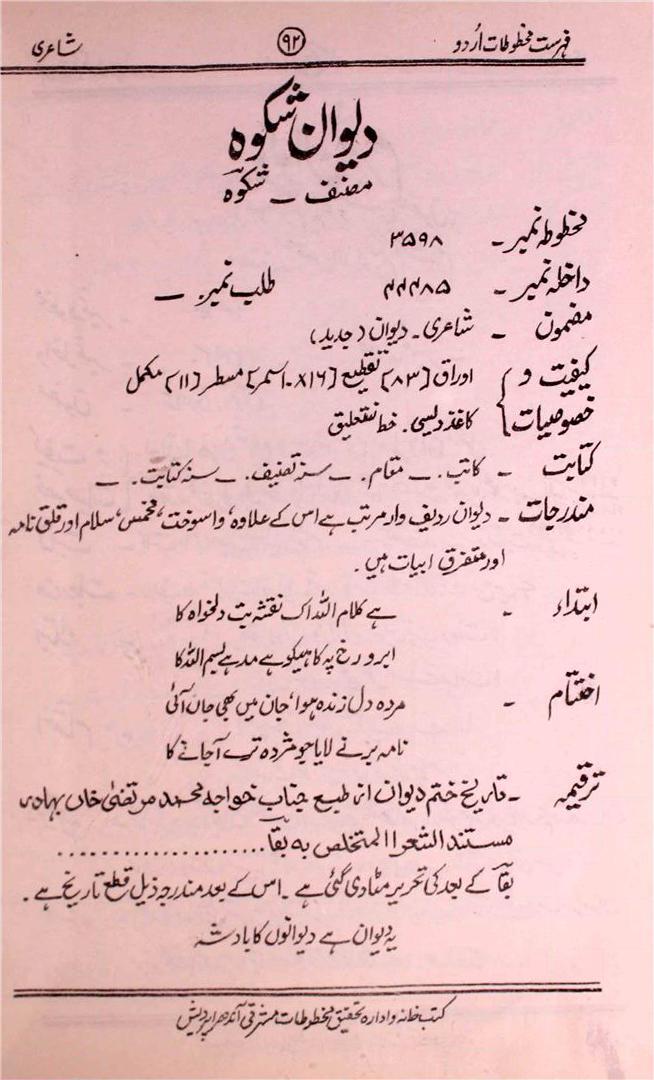 فہرست مخطوطات اُردو ۹۲ شاعری
دیوان شکوہ
مصنف ـ شکوہ
مخطوطہ نمبر ـ ۳۵۹۸
داخلہ نمبر ـ ۴۴۴۸۵ طلب نمبر ـ
مضمون ـ شاعری ـ دیوان (جدید)
کیفیت و } اوراق [۸۳] تقطیع [۱۶×۱۰ سمر] مسطر [۱۱] مکمل
خصوصیات } کاغذ دیسی ۔ خط نستعلیق
کتابت ـ کاتب ۔ ـ مقام ۔ ـ سنہ تصنیف ۔ ـ سنہ کتابت ۔ ـ
مندرجات ـ دیوان ردیف وار مرتب ہے اس کے علاوہ، واسوخت، مخمس، سلام اور قلق نامہ
اور متفرق ابیات ہیں ۔
ابتداء ـ ہے کلام اللہ اک نقشہ بت دلخواہ کا
ابرو رخ پہ کا ہیکو ہے مد ہے بسم اللہ کا
اختتام ـ مردہ دل زندہ ہوا، جان میں بھی جاں آئی
نامہ بر نے لایا جو مژدہ ترے آجانے کا
ترقیمہ ـ تاریخ ختم دیوان از طبع جناب خواجہ محمد مرتضیٰ خاں بہادر
مستند الشعرا المتخلص بہ بقا ....................
بقا کے بعد کی تحریر مٹا دی گئی ہے ۔ اس کے بعد مندرجہ ذیل قطع تاریخ ہے ۔
یہ دیوان ہے دیوانوں کا بادشہ
کتب خانہ و ادارہ تحقیق مخطوطات مشرقی آندھرا پردیش